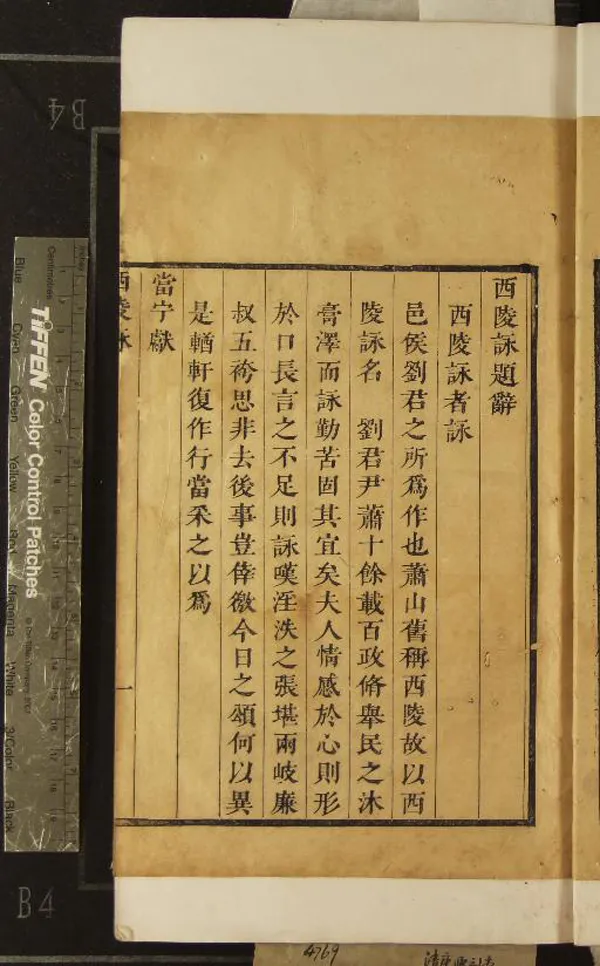 西陵詠題辭
西陵詠者詠
邑侯劉君之所爲作也蕭山舊稱西陵故以西
陵詠名　劉君尹蕭十餘載百政脩舉民之沐
膏澤而詠勤苦固其宜矣夫人情感於心則形
於口長言之不足則詠嘆淫泆之張堪兩岐廉
叔五袴思非去後事豈倖徼今日之頌何以異
是輶軒復作行當釆之以爲
當宁獻
西陵詠
一
B4
B4
TIFFEN Color Control Patches
Centimetres
Inches
Blue
Cyan
Green
Yellow
Red
Magenta
White
3/Color
Black
4769